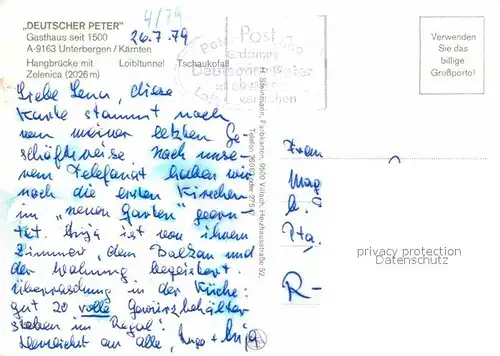 „DEUTSCHER PETER"
Gasthaus seit 1500
A-9163 Unterbergen / Kärnten
Hangbrücke mit Loibltunnel Tschaukofall
Zelenica (2026 m)
4/79
26.7.79
Post
Verwenden
Sie das
billige
Grußporto!
Liebe Lena, diese
Karte stammt noch
von meiner letzten Ge
schäftsreise. Nach unse
rem Telefonat haben wir
noch die ersten Kirschen
im "neuen Garten" geern
tet. Anja ist von ihrem
Zimmer, dem Balkon und
der Wohnung begeistert.
Überraschung in der Küche:
gut 20 volle Gewürzbehälter
stehen im Regal!
Herzlichst an alle, Ingo +
Steinmann, Farbkarten, 9500 Villach, Herzhausstraße 52,
Frau
Mag
Pta.
R-
privacy protection
Datenschutz